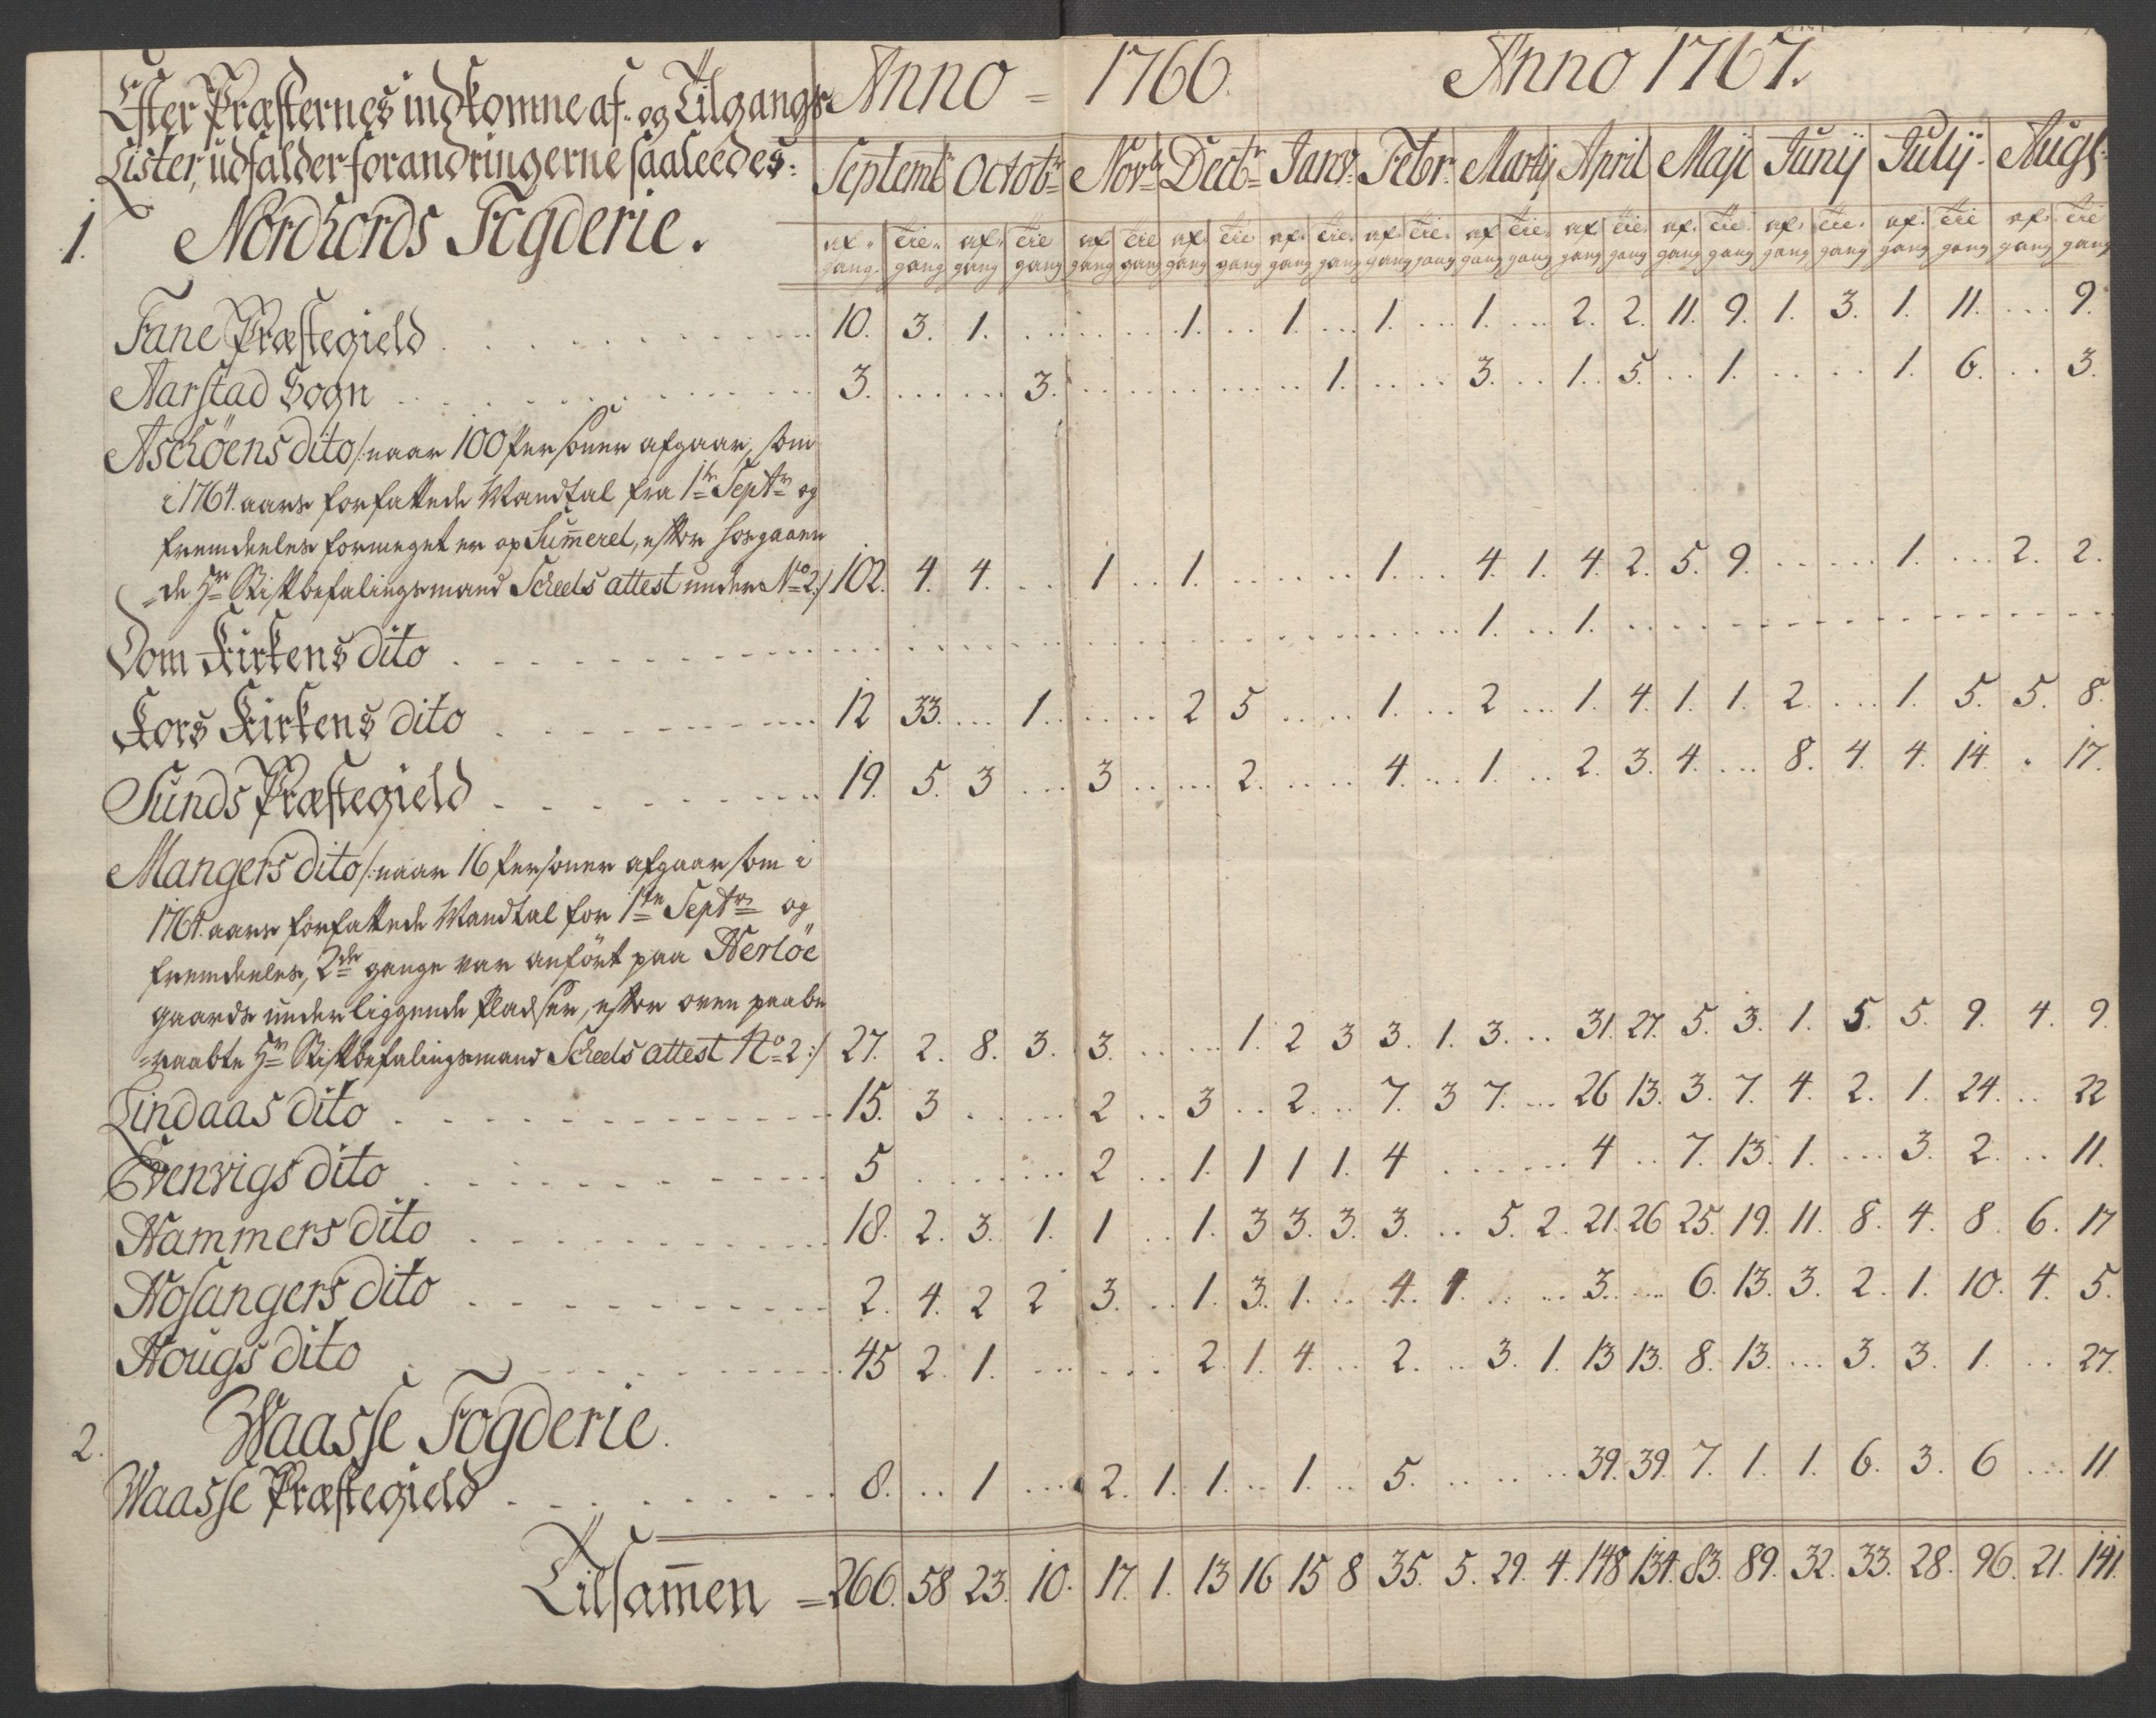 Anno = 1766. Anno 1767.
Efter Præsternes indkomne af- og Tilgangs
Lister, udfalder forandringerne saaleedes:
Septembr Octobr Novbr Decbr Janv: Febr: Martij April Maji Junij Julij Augs:
1. Nordhords Fogderie.
afgang. tilgang afgang tilgang afgang tilgang afgang tilgang afgang tilgang afgang tilgang afgang tilgang afgang tilgang afgang tilgang afgang tilgang afgang tilgang afgang tilgang
Fane Præstegield 10. 3. 1. ... 1. .. 1. ... 1. ... 1. ... 2. 2. 11. 9. 1. 3. 1. 11. ... 9.
Aarstad Sogn 3. ... 3. ... 1. ... 3. .. 1. 5. .. 1. ... 1. 6. .. 3.
Aschöens dito /: naar 100 Personer afgaar, som
i 1764. aars forfattede Mandtal fra 1te Septr og
fremdeeles formeget er op Sum̄eret, efter hosgaaen
=de Hr Stiftbefalingsmand Scheels attest under No 2:/ 102. 4. 4. .. 1 .. 1. ... 1. ... 4. 1. 4. 2. 5. 9. ... 1. ... 2. 2.
Dom Kirkens dito ... 1. .. 1. ...
Kors Kirkens dito 12 33. ... 1. ... 2 5 ... 1. .. 2 ... 1. 4. 1. 1. 2. ... 1. 5. 5. 8.
Sunds Præstegield 19. 5. 3 ... 3 ... 2. ... 4. ... 1. .. 2. 3. 4. ... 8. 4. 4. 14. . 17.
Mangers dito /: naar 16 Personer afgaar som i
1764. aars forfattede Mandtal for 1te Septr og
fremdeeles, 2de gange var anfört paa Herlöe
gaards underliggende Pladser, efter oven paabe
=raabte Hr Stiftbefalingsmand Scheels attest No 2:/ 27. 2. 8. 3. 3. ... 1. 2 3 3. 1. 3. .. 31. 27. 5. 3. 1. 5. 5. 9. 4. 9.
Lindaas dito 15. 3 ... 2 .. 3 .. 2. .. 7. 3 7. ... 26 13. 3. 7. 4. 2. 1. 24. .. 22
Evenvigs dito 5 ... 2 .. 1. 1 1 1. 4 ... 4 .. 7. 13. 1. ... 3. 2. .. 11.
Hammers dito 18. 2. 3. 1. 1 .. 1. 3 3. 3. 3. .. 5. 2. 21. 26 25. 19. 11. 8. 4. 8. 6. 17
Hosangers dito 2. 4. 2 2 3. .. 1. 3. 1. .. 4. 1. ... 3. ... 6. 13. 3. 2. 1. 10. 4. 5.
Hougs dito 45 2. 1. ... 2. 1. 4. .. 2. .. 3. 1. 13 13. 8. 13. ... 3. 3. 1. .. 27.
2. Waasse Fogderie.
Waasse Præstegield 8. .. 1 ... 2. 1. 1. .. 1. .. 5. ... 39. 39. 7. 1. 1. 6. 3. 6 ... 11
Tilsam̄en = 266. 58 23. 10. 17. 1. 13 16 15 8 35. 5. 29. 4. 148 134. 83. 89. 32. 33. 28. 96. 21. 141.